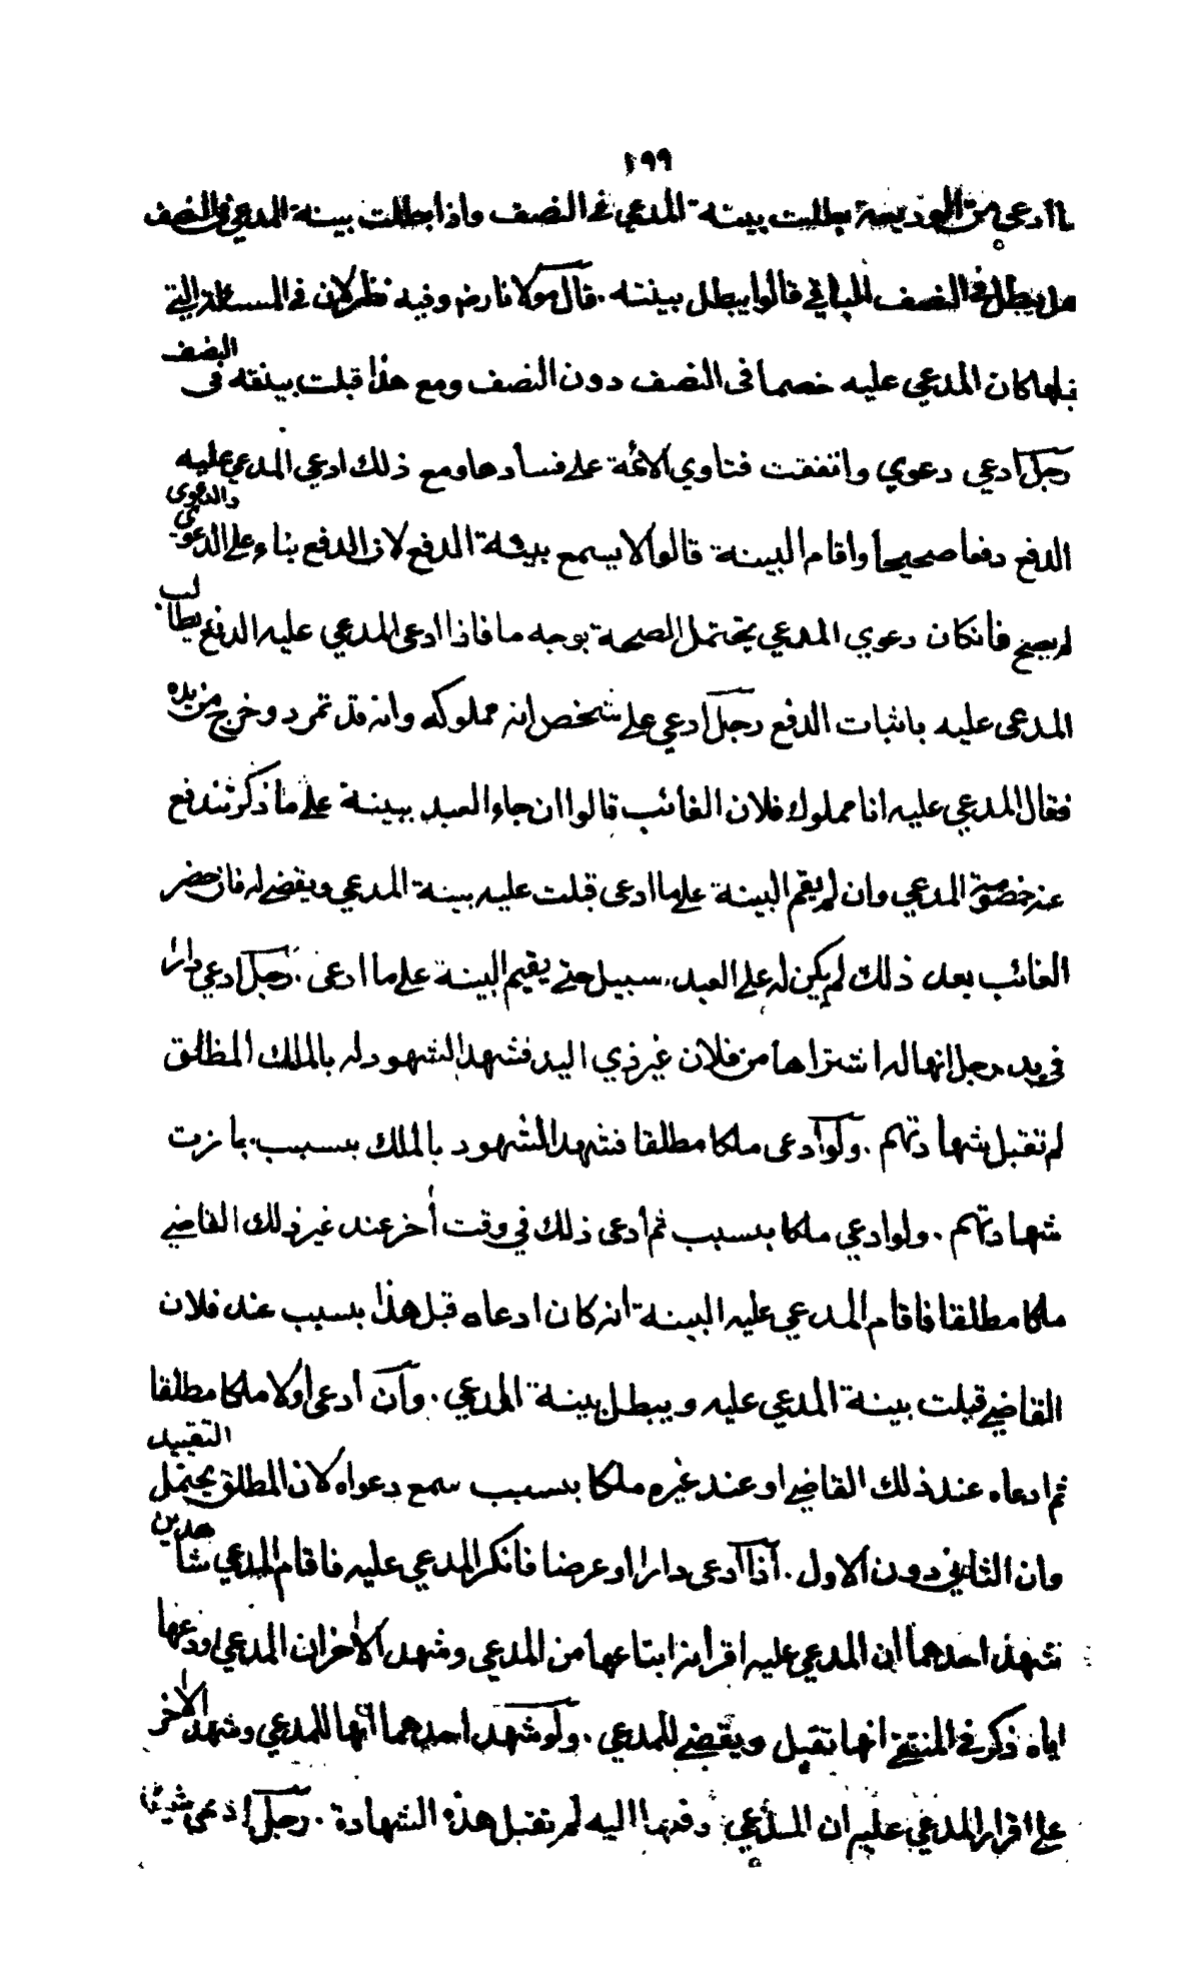 ١٩٩
ما ادعى من الوديعة بطلت بينة المدعي في النصف واذا بطلت بينة المدعي في النصف
هل يبطل في النصف الباقي قالوا يبطل بينته . قال مولانا رضه وفيه نظر لان في المسئلة التي
قبلها كان المدعي عليه خصما في النصف دون النصف ومع هذا قبلت بينته في النصف
رجل ادعي دعوي واتفقت فتاوي الائمة على فسادها ومع ذلك ادعي المدعي عليه
الدفع دفعا صحيحا واقام البينة قالوا لا يسمع بينة الدفع لان الدفع بناء على الدعوى والدعوى
لم يصح فانكان دعوي المدعي يحتمل الصحة بوجه ما فاذا ادعى المدعي عليه الدفع يطالب
المدعى عليه باثبات الدفع رجل ادعي على شخص انه مملوكه وانه قد تمرد وخرج من يده
فقال المدعي عليه انا مملوك فلان الغائب قالوا ان جاء العبد ببينة على ما ذكر تندفع
عنه خصومة المدعي وان لم يقم البينة على ما ادعى قبلت عليه بينة المدعي ويقضى له فان حضر
الغائب بعد ذلك لم يكن له على العبد سبيل حتى يقيم البينة على ما ادعى . رجل ادعي دارا
في يد رجل انها له اشتراها من فلان غير ذي اليد فشهد الشهود له بالملك المطلق
لم تقبل شهادتهم . ولو ادعى ملكا مطلقا فشهد الشهود بالملك بسبب جازت
شهادتهم . ولو ادعي ملكا بسبب ثم ادعى ذلك في وقت أخر عند غير ذلك القاضي
ملكا مطلقا فاقام المدعي عليه البينة انه كان ادعاه قبل هذا بسبب عند فلان
القاضي قبلت بينة المدعي عليه ويبطل بينة المدعي . وان ادعى اولا ملكا مطلقا
ثم ادعاه عند ذلك القاضي او عند غيره ملكا بسبب سمع دعواه لان المطلق يحتمل التقييد
وان الثاني دون الاول . اذا ادعى دارا او عرضا فانكر المدعي عليه فاقام المدعي شاهدين
شهد احدهما ان المدعي عليه اقر انه ابتاعها من المدعي وشهد الاخر ان المدعي اودعها
اياه ذكر في المنتقى انها تقبل ويقضى للمدعي . ولو شهد احدهما انها للمدعي وشهد الاخر
على اقرار المدعي عليه ان المدعي دفعها اليه لم تقبل هذه الشهادة . رجل ادعى شيئا